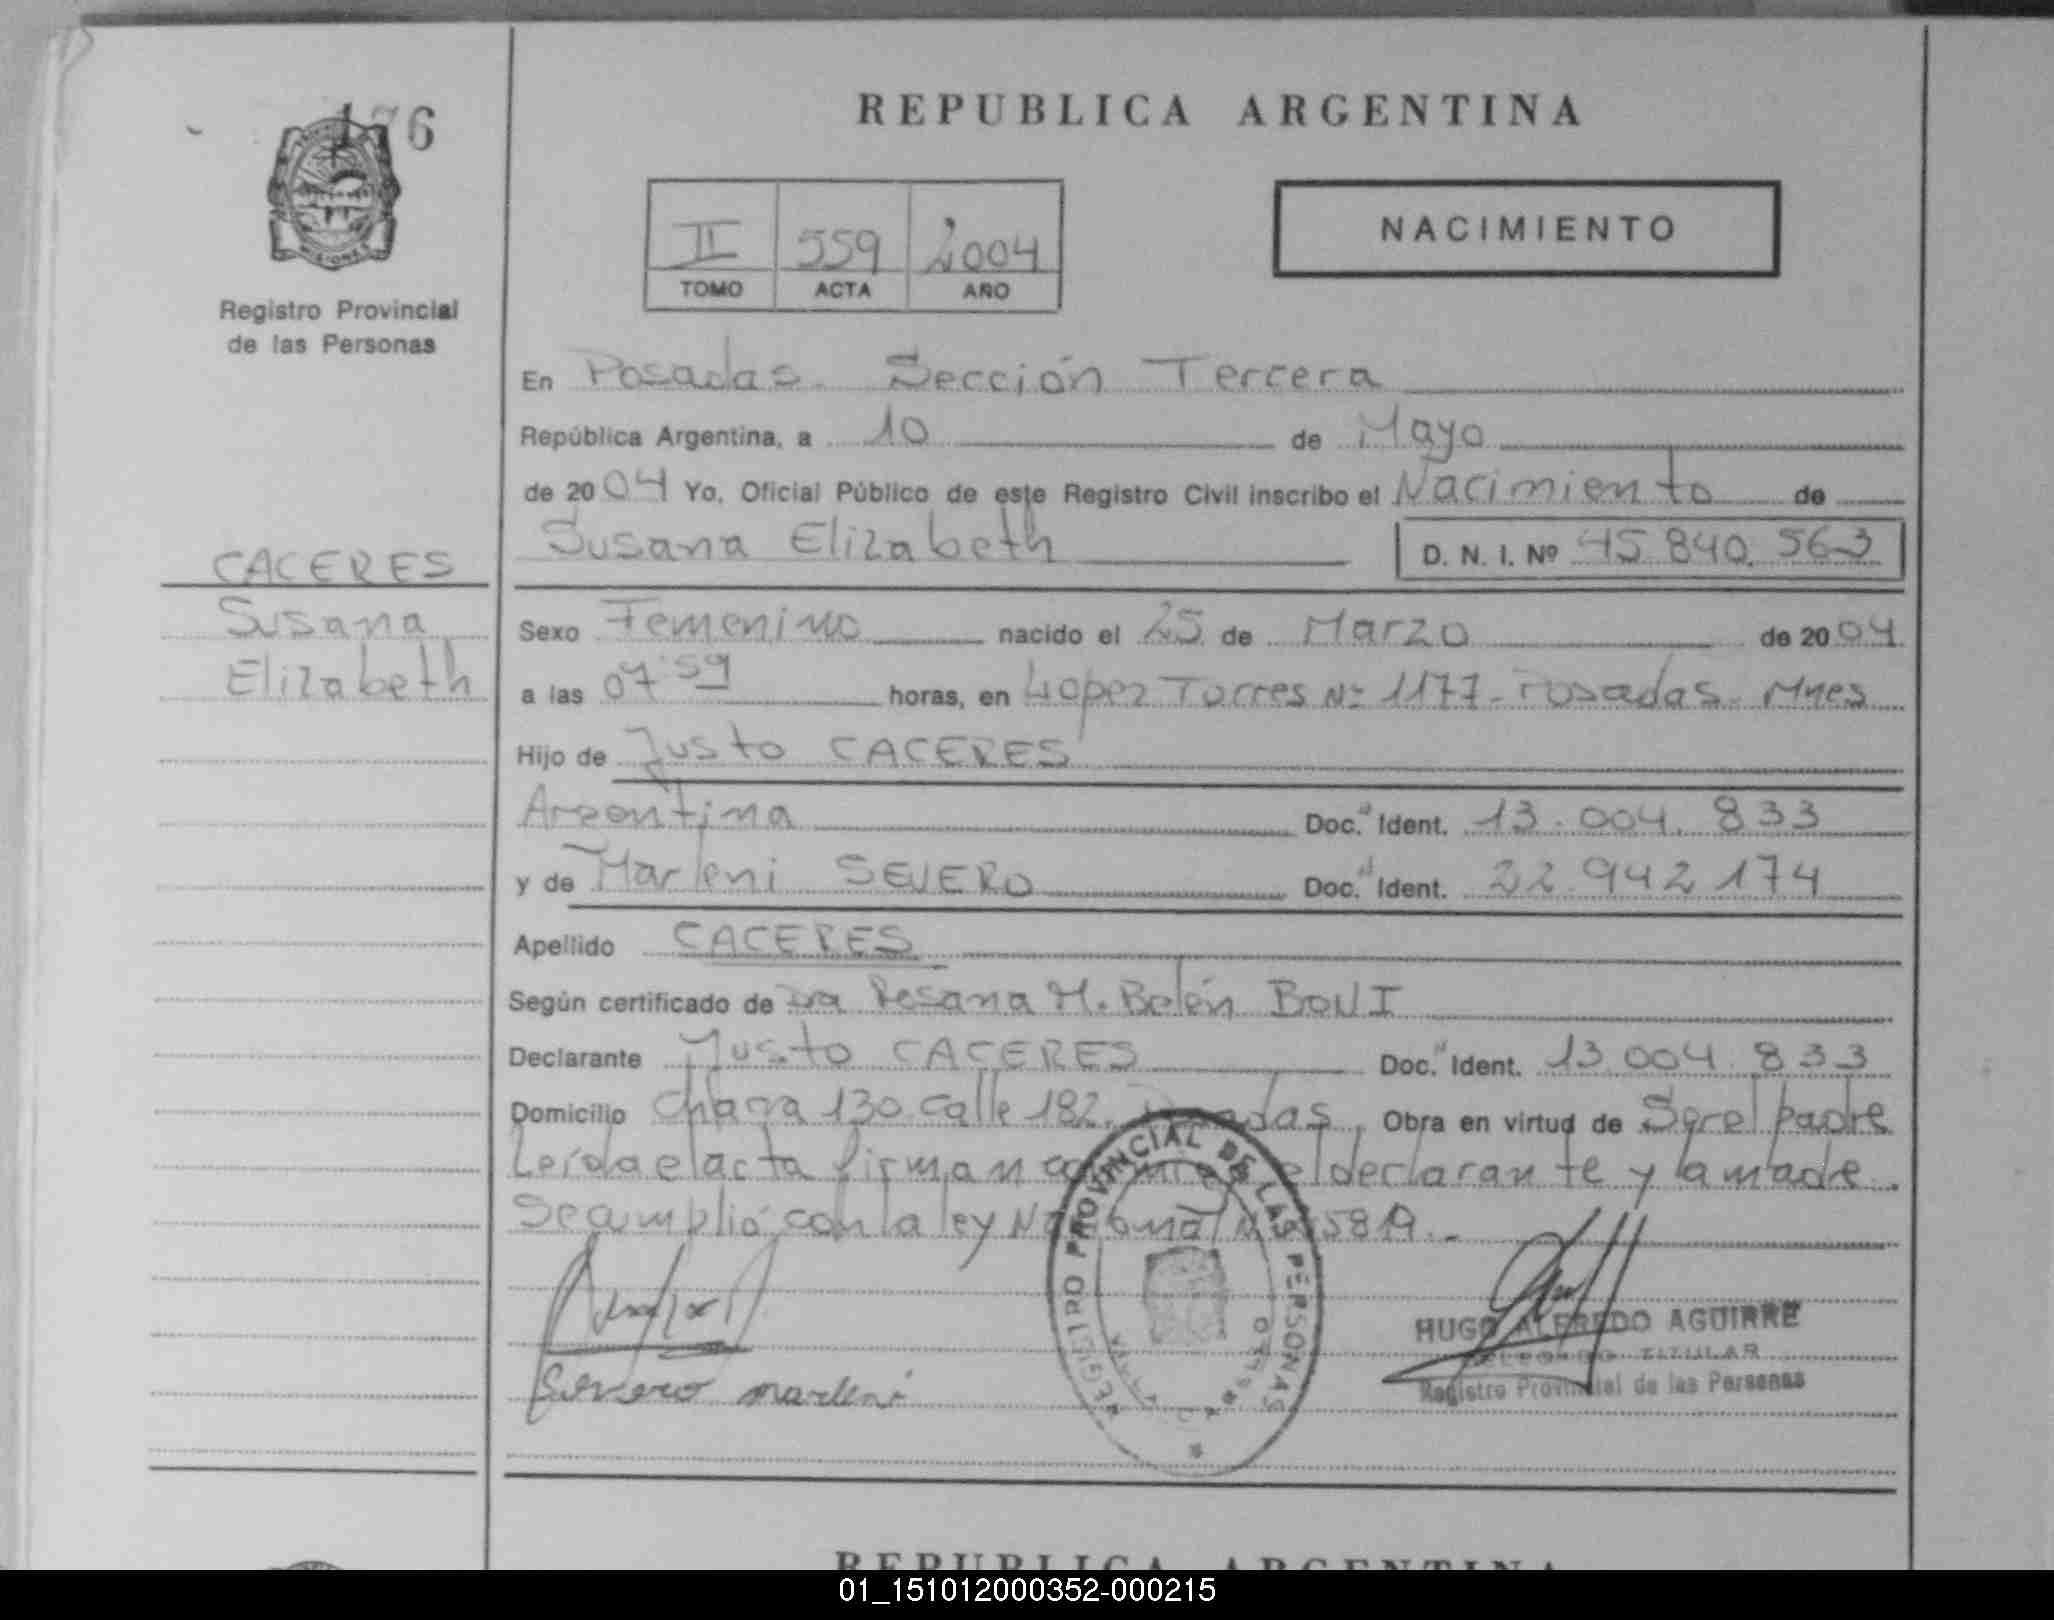 176
REPUBLICA ARGENTINA
II 559 2004
TOMO ACTA AÑO
NACIMIENTO
MISIONES
Registro Provincial
de las Personas
En Posadas. Sección Tercera
República Argentina, a 10 de Mayo
de 2004 Yo, Oficial Público de este Registro Civil inscribo el Nacimiento de
Susana Elizabeth D. N. I. Nº 45.840.563
CACERES
Susana
Elizabeth
Sexo Femenino nacido el 25 de Marzo de 2004
a las 07 59 horas, en Lopez Torres Nº 1177 - Posadas - Mnes
Hijo de Justo CACERES
Argentina Doc. Ident. 13.004.833
y de Marleni SEVERO Doc. Ident. 22.942.174
Apellido CACERES
Según certificado de Dra Rosana M. Belén BONI
Declarante Justo CACERES Doc. Ident. 13.004.833
Domicilio Chacra 130 calle 182. Posadas Obra en virtud de Ser el padre
Leída el acta firman conmigo el declarante y la madre.
Se cumplió con la ley Nacional Nº 25819.-
REGISTRO PROVINCIAL DE LAS PERSONAS
Severo marleni
HUGO ALFREDO AGUIRRE
DELEGADO TITULAR
Registro Provincial de las Personas
REPUBLICA ARGENTINA
01_151012000352-000215